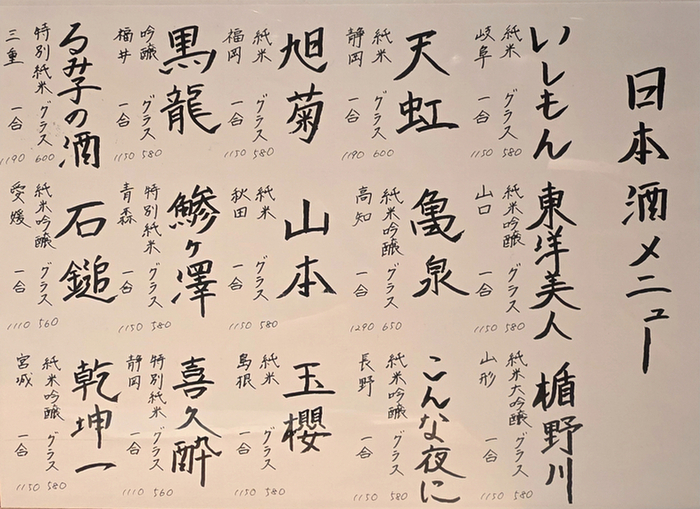 日本酒メニュー
いしもん
純米 グラス 580
岐阜 一合 1150
天虹
純米 グラス 600
静岡 一合 1190
旭菊
純米 グラス 580
福岡 一合 1150
黒龍
吟醸 グラス 580
福井 一合 1150
るみ子の酒
特別純米 グラス 600
三重 一合 1190
東洋美人
純米吟醸 グラス 580
山口 一合 1150
亀泉
純米吟醸 グラス 650
高知 一合 1290
山本
純米 グラス 580
秋田 一合 1150
鰺ヶ澤
特別純米 グラス 580
青森 一合 1150
石鎚
純米吟醸 グラス 560
愛媛 一合 1110
楯野川
純米大吟醸 グラス 580
山形 一合 1150
こんな夜に
純米吟醸 グラス 580
長野 一合 1150
玉櫻
純米 グラス 580
島根 一合 1150
喜久酔
特別純米 グラス 560
静岡 一合 1110
乾坤一
純米吟醸 グラス 580
宮城 一合 1150